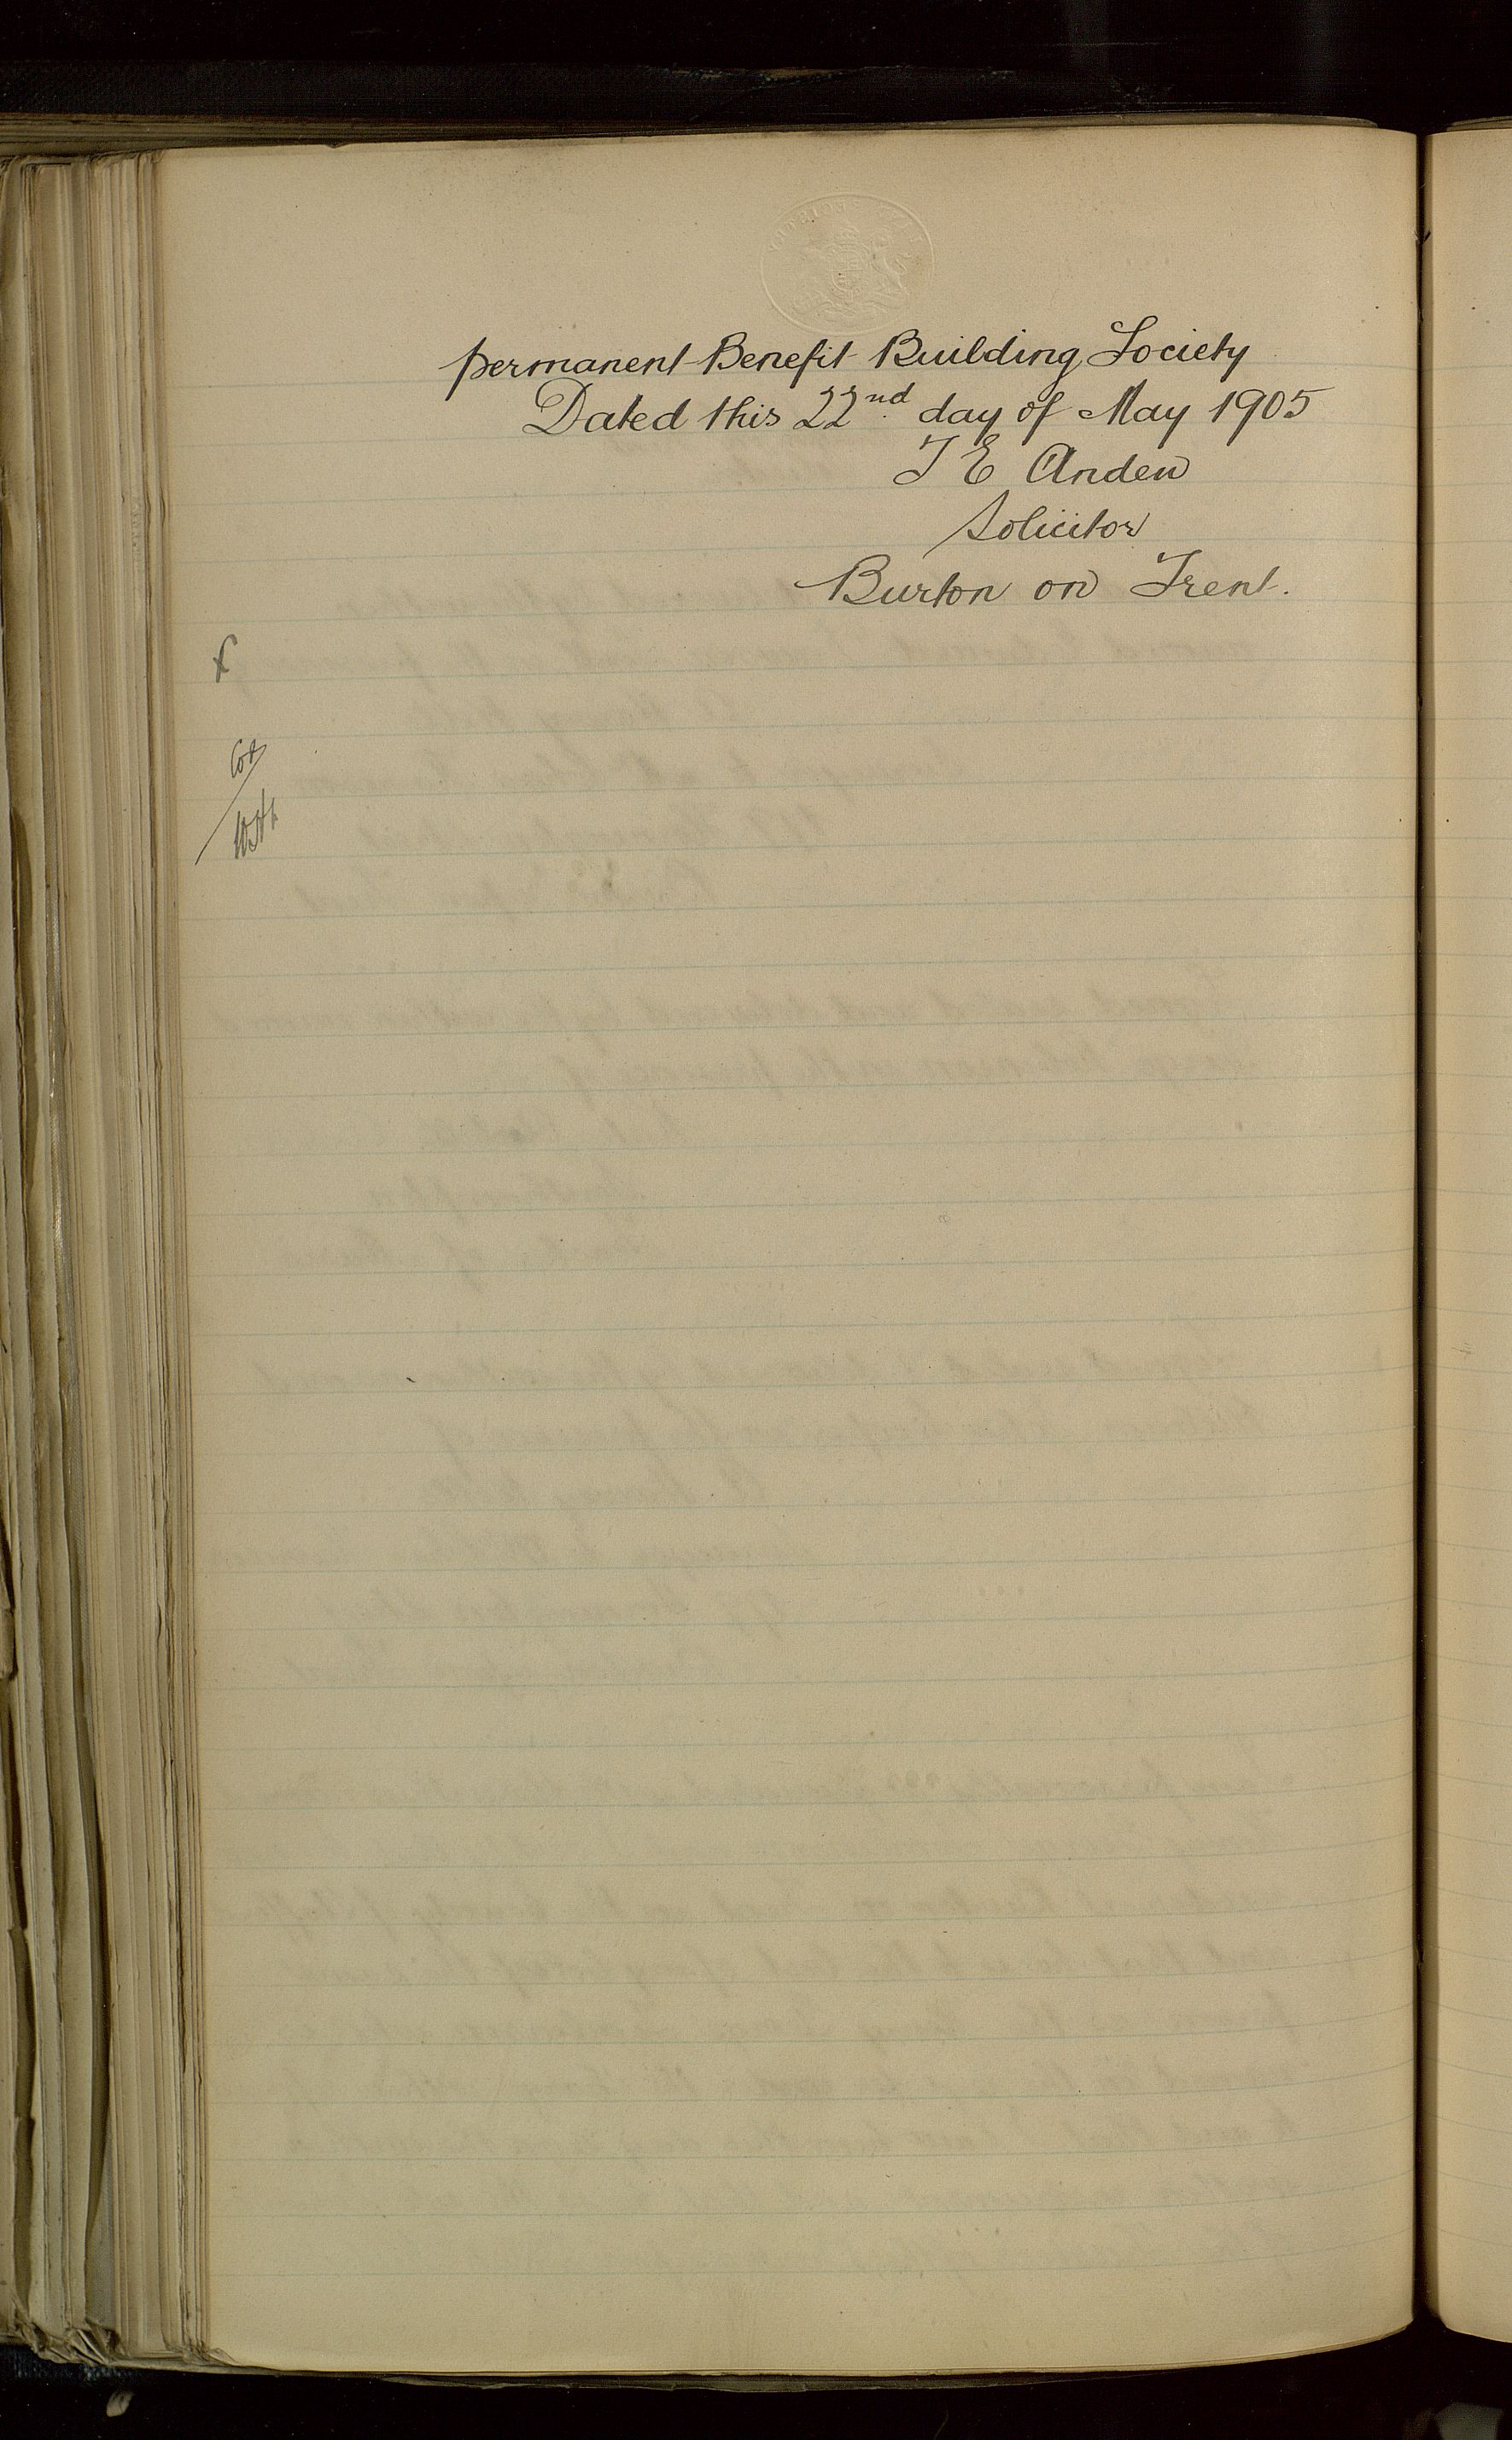 permanent Benefit Building Society
Dated this 22nd day of May 1905
T E Auden
Solicitor
Burton on Trent.
x
Cox
WH